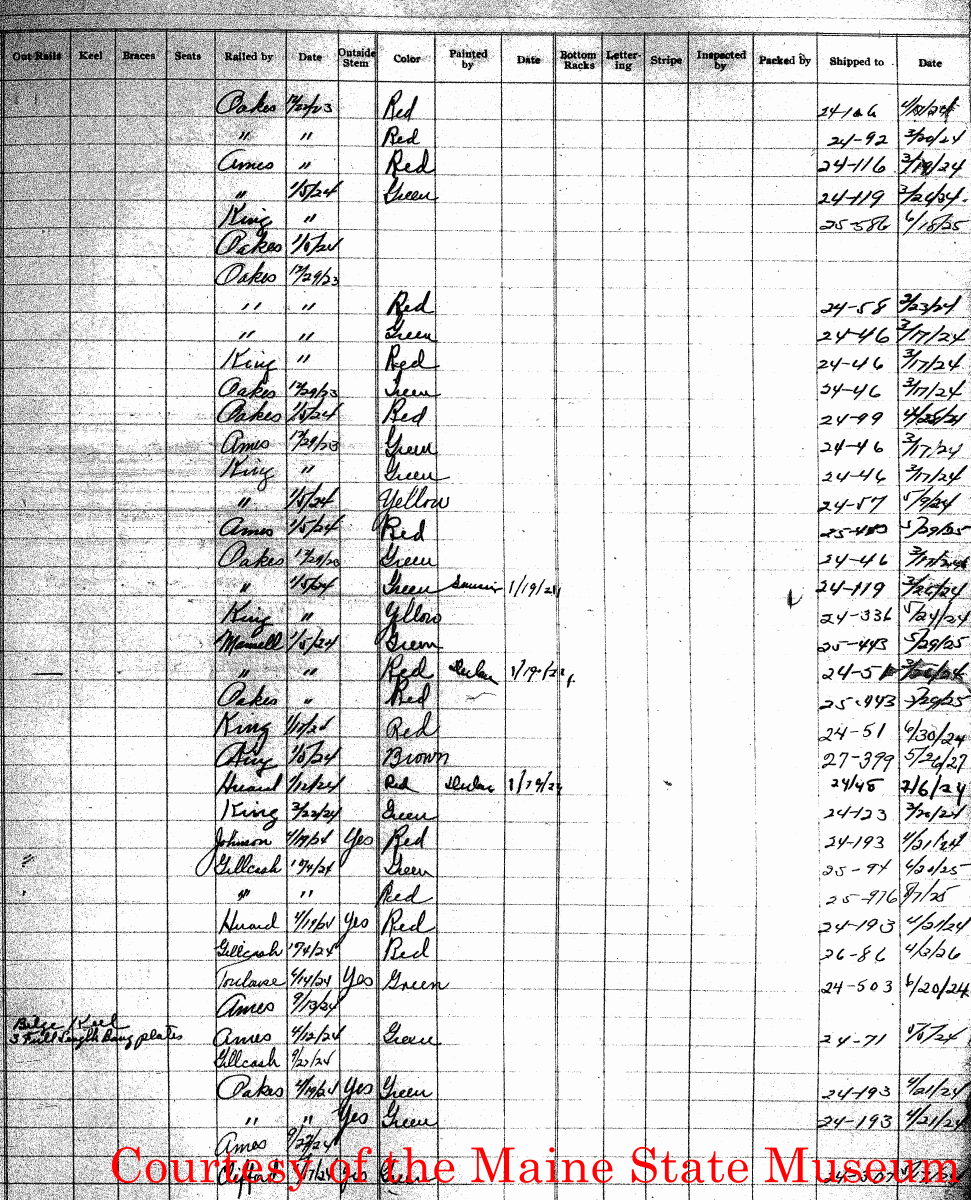 Out Rails Keel Braces Seats Railed by Date Outside Stem Color Painted by Date Bottom Racks Lettering Stripe Inspected by Packed by Shipped to Date
Oakes 12/22/23 Red 24-106
" " Red 24-92 3/20/24
Ames " Red 24-116 3/19/24
" 1/5/24 Green 24-119 3/26/24
King " 25-586 6/18/25
Oakes 1/8/24
Oakes 12/29/23
" " Red 24-58 3/23/24
" " Green 24-46 3/17/24
King " Red 24-46 3/17/24
Oakes 12/29/23 Green 24-46 3/17/24
Oakes 1/5/24 Red 24-99
Ames 12/29/23 Green 24-46 3/17/24
King " Green 24-46 3/17/24
" 1/5/24 Yellow 24-57 5/9/24
Ames 1/5/24 Red 5/29/25
Oakes 12/29/23 Green 24-46 3/17/24
" 1/5/24 Green 1/19/24 24-119 3/26/24
King " Yllow 24-336 5/24/24
1/5/24 Green 25-443 5/29/25
" " Red 1/19/24 24-51
Oakes " Red 25-443 5/29/25
King Red 24-51 6/30/24
King 1/8/24 Brown 27-399 5/26/27
Huard 1/12/24 Red 1/19/24 2/6/24
King 3/22/24 Green 24-123 3/20/24
Johnson 4/19/24 Yes Red 24-193 4/21/24
" Gillcash Green 25-94 6/20/25
" " Red 25-976 8/7/25
Huard 4/19/24 Yes Red 24-193 4/21/24
Gillcash Red 26-86 4/3/26
Toulouse 4/14/24 Yes Green 24-503 6/20/24
Ames 9/13/24
Bilge Keel
3 Full Length Bang plates Ames 4/12/24 Green 24-71
Gillcash 9/27/24
Oakes 4/19/24 Yes Green 24-193 4/21/24
" " Yes Green 24-193 4/21/24
Ames 9/27/24
Yes Green
Courtesy of the Maine State Museum